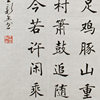 足鸡豚山重
村箫鼓追随
今若许闲乘